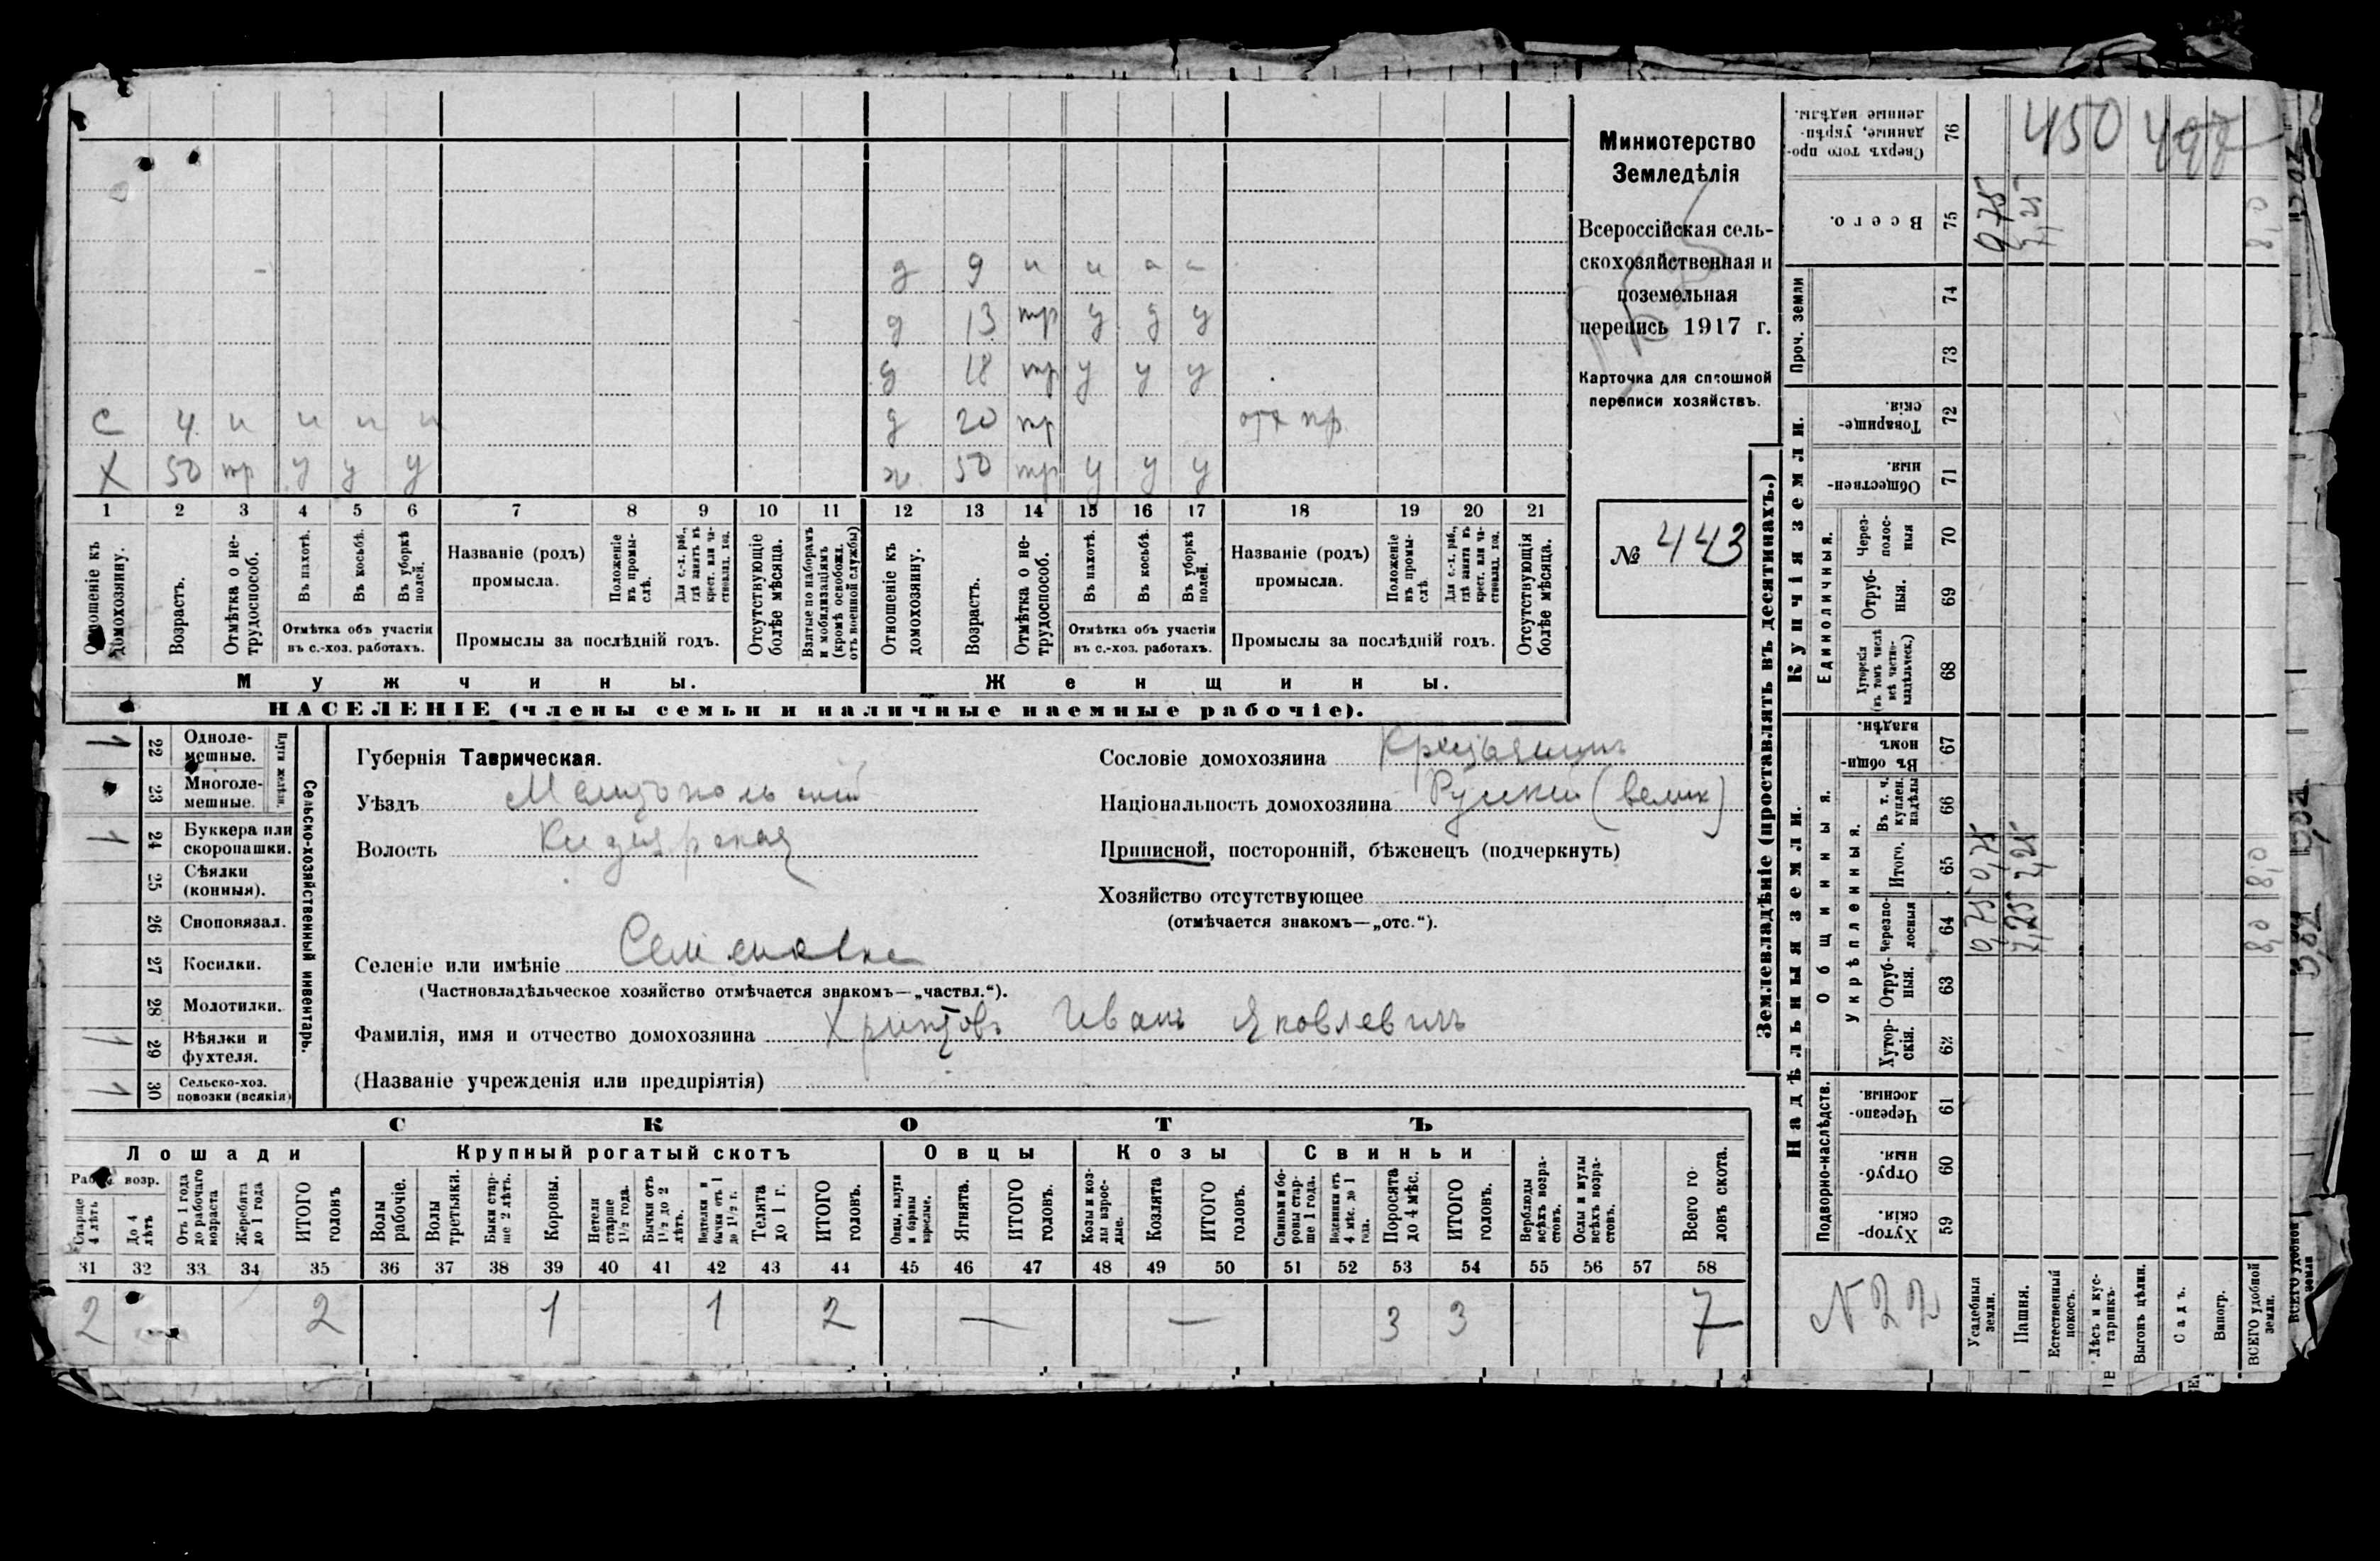 д 9 н н н н
д 13 тр у у у
д 18 тр у у у
с 4 н н н н д 20 тр отх пр
Х 50 тр у у у ж 50 тр у у у
1 2 3 4 5 6 7 8 9 10 11 12 13 14 15 16 17 18 19 20 21
Отношеніе къ домохозяину.
Возрастъ.
Отмѣтка о нетрудоспособ.
Въ пахотѣ.
Въ косьбѣ.
Въ уборкѣ полей.
Отмѣтка объ участіи
въ с.-хоз. работахъ.
Названіе (родъ)
промысла.
Положеніе въ промыслѣ.
Для с.-х. раб., гдѣ занятъ въ крест. или частновлад. хоз.
Промыслы за послѣдній годъ.
Отсутствующіе болѣе мѣсяца.
Взятые по наборамъ и мобилизаціямъ (кромѣ освобожд. отъ военной службы)
Отношеніе къ домохозяину.
Возрастъ.
Отмѣтка о нетрудоспособ.
Въ пахотѣ.
Въ косьбѣ.
Въ уборкѣ полей.
Отмѣтка объ участіи
въ с.-хоз. работахъ.
Названіе (родъ)
промысла.
Положеніе въ промыслѣ.
Для с.-х. раб., гдѣ занята въ крест. или частновлад. хоз.
Промыслы за послѣдній годъ.
Отсутствующія болѣе мѣсяца.
Мужчины. Женщины.
НАСЕЛЕНІЕ (члены семьи и наличные наемные рабочіе).
Министерство
Земледѣлія
Всероссійская сель-
скохозяйственная и
поземельная
перепись 1917 г.
Карточка для сплошной
переписи хозяйствъ.
№ 443
1 22 Однолемешные.
23 Многолемешные.
Плуги желѣзн.
1 24 Буккера или скоропашки.
25 Сѣялки (конныя).
26 Сноповязал.
27 Косилки.
28 Молотилки.
1 29 Вѣялки и фухтеля.
1 30 Сельско-хоз. повозки (всякія)
Сельско-хозяйственный инвентарь.
Губернія Таврическая.
Уѣздъ Мелитопольскій
Волость Кизіярская
Селеніе или имѣніе Семеновка
(Частновладѣльческое хозяйство отмѣчается знакомъ—„частвл.“).
Фамилія, имя и отчество домохозяина Иванъ Яковлевичъ
(Названіе учрежденія или предпріятія)
Сословіе домохозяина Крестьянинъ
Національность домохозяина Русскій (велик)
Приписной, посторонній, бѣженецъ (подчеркнуть)
Хозяйство отсутствующее
(отмѣчается знакомъ—„отс.“).
СКОТЪ
Лошади Крупный рогатый скотъ Овцы Козы Свиньи
Рабоч. возр.
Старше 4 лѣтъ
До 4 лѣтъ
Отъ 1 года до рабочаго возраста
Жеребята до 1 года
ИТОГО головъ
Волы рабочіе.
Волы третьяки.
Быки старше 2 лѣтъ.
Коровы.
Нетели старше 1½ года.
Бычки отъ 1½ до 2 лѣтъ.
Подтелки и бычки отъ 1 до 1½ г.
Телята до 1 г.
ИТОГО головъ.
Овцы, валухи и бараны взрослые.
Ягнята.
ИТОГО головъ.
Козы и козлы взрослые.
Козлята
ИТОГО головъ.
Свиньи и боровы старше 1 года.
Подсвинки отъ 4 мѣс. до 1 года.
Поросята до 4 мѣс.
ИТОГО головъ.
Верблюды всѣхъ возрастовъ.
Ослы и мулы всѣхъ возрастовъ.
Всего головъ скота.
31 32 33 34 35 36 37 38 39 40 41 42 43 44 45 46 47 48 49 50 51 52 53 54 55 56 57 58
2 2 1 1 2 — — 3 3 7
Землевладѣніе (проставлять въ десятинахъ.)
Надѣльныя земли.
Купчія земли.
Проч. земли
Подворно-наслѣдств.
Общинныя.
Укрѣпленныя.
Единоличныя.
Сверхъ того проданные, укрѣпленные надѣлы. 76 450
Всего. 75 0,75 7,25 8,0
74
73
Товарищескія. 72
Общественныя. 71
Черезполосныя 70
Отрубныя. 69
Хуторскія (въ томъ числѣ всѣ частновладѣльческ.) 68
Въ общинномъ владѣн. 67
Въ т. ч. куплен. надѣлы 66
Итого. 65 0,75 7,25 8,0
Черезполосныя 64 0,75 7,25 8,0
Отрубныя. 63
Хуторскія. 62
Черезполосныя. 61
Отрубныя. 60
Хуторскія. 59
N 22
Усадебныя земли.
Пашня.
Естественный покосъ.
Лѣсъ и кустарникъ.
Выгонъ цѣлин.
Садъ.
Виногр.
ВСЕГО удобной земли.
ВСЕГО удобной земли